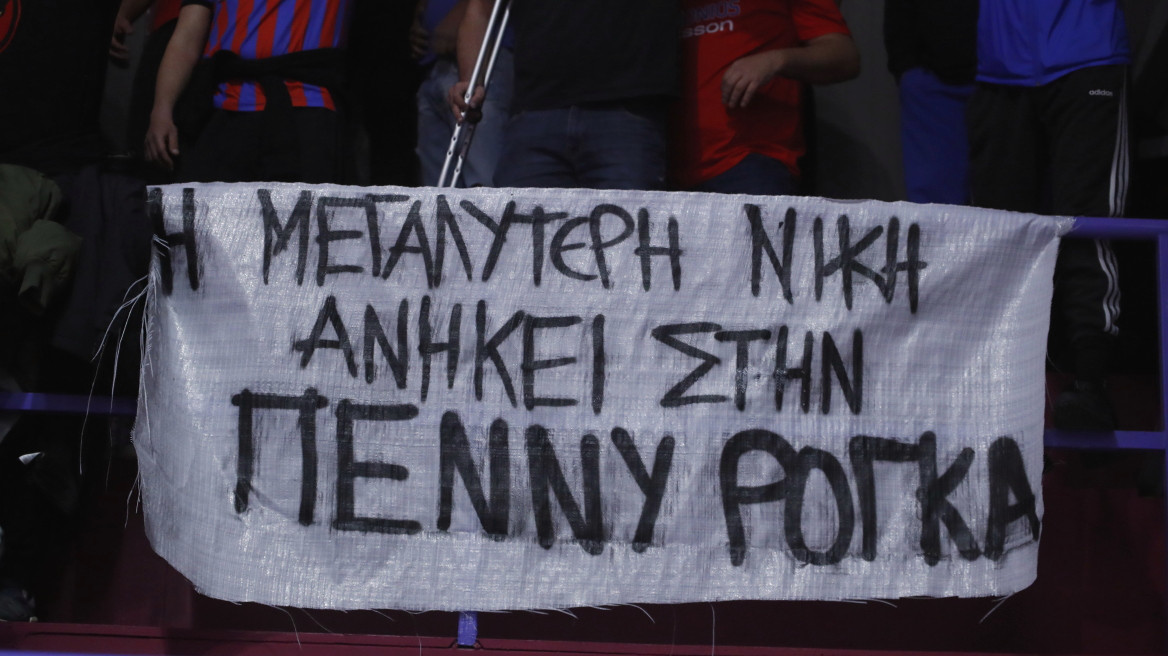 ısson
adidas
Η ΜΕΓΑΛΥΤΕΡΗ ΝΙΚΗ
ΑΝΗΚΕΙ ΣΤΗΝ
ΠΕΝΝΥ ΡΟΓΚΑ